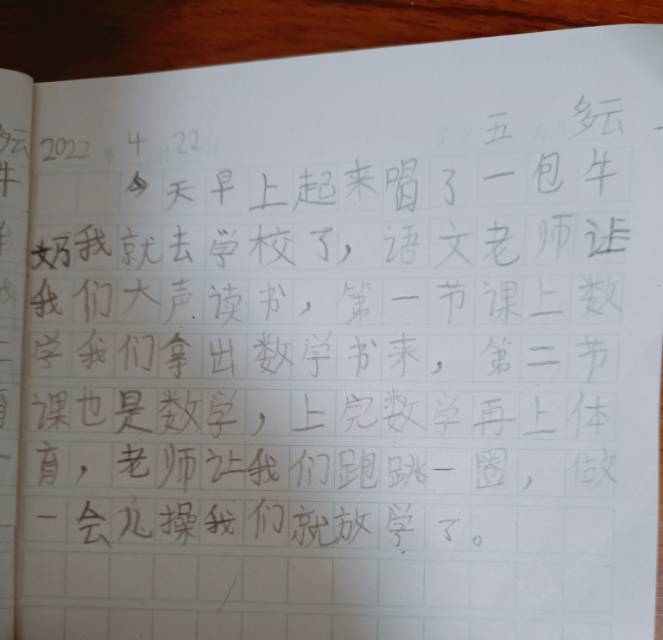 2022 4 22 五 多云
今天早上起来唱了一包牛
奶我就去学校了，语文老师让
我们大声读书，第一节课上数
学我们拿出数学书来，第二节
课也是数学，上完数学再上体
育，老师让我们跑跳一圈，做
一会儿操我们就放学了。